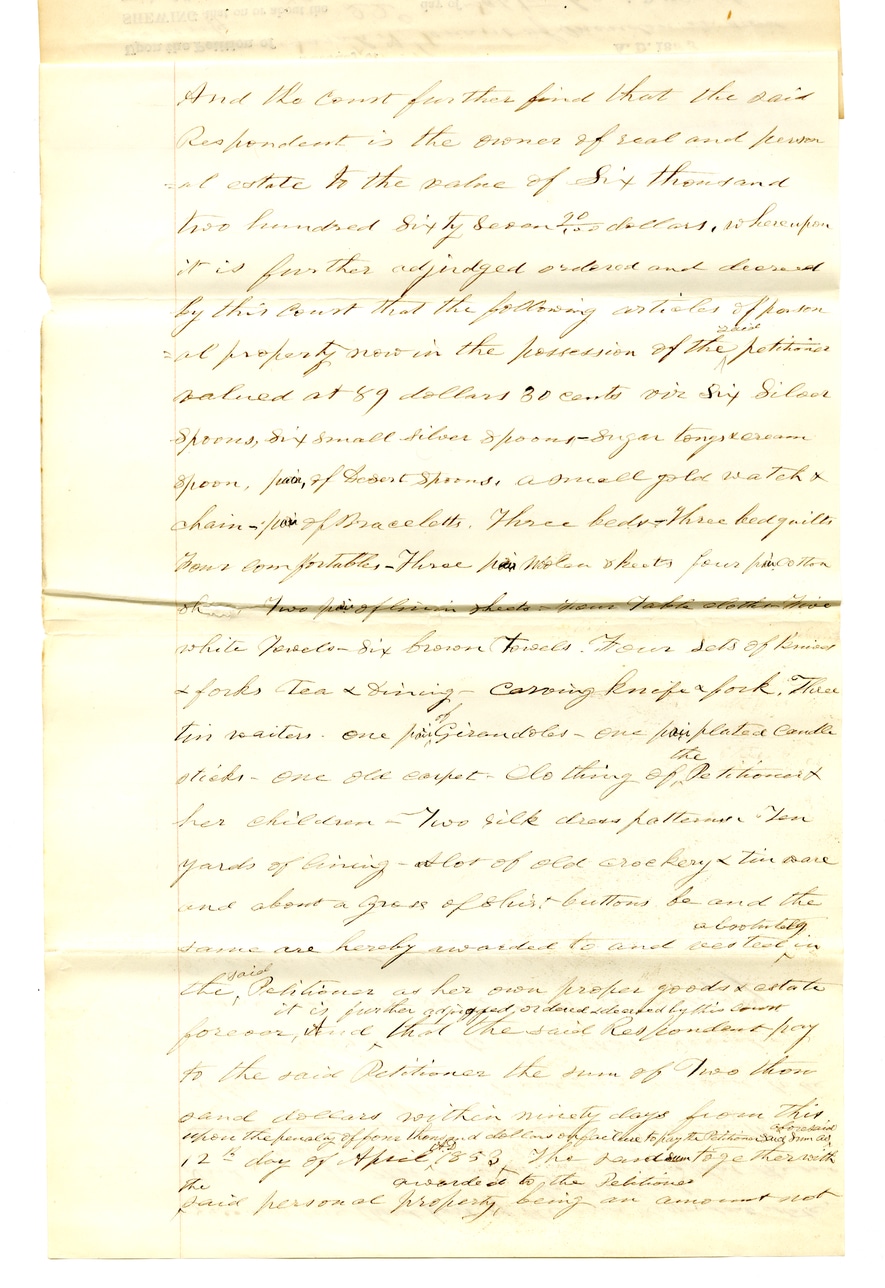 SHEWING that on or about the day of
Upon the Petition of A. D. 18
And the court further find that the said
Respondent is the owner of real and person
=al estate to the value of Six thousand
two hundred Sixty Seven 20/100 dollars, whereupon
it is further adjudged ordered and decreed
by this Court that the following articles of person
=al property now in the possession of the said petitioner
valued at 89 dollars 30 cents viz Six Silver
Spoons, Six small silver spoons - Sugar tongs & cream
spoon, pair, of Desert Spoons, a small gold watch &
chain - pair of Braceletts. Three beds - Three bedquilts
Four comfortables - Three pair Wolen sheets four pair cotton
Two pair of linin sheets - Four Table cloths - Five
white Towels - Six brown Towels. Four sets of knives
& forks tea & Dining - Carving knife & fork. Three
tin waiters. one pair of Girandoles - one pair plated candle
sticks - one old carpet - Clothing of the Petitioner &
her children - Two silk dress patterns. Ten
yards of lining - A lot of old crockery & tin ware
and about a Gross of shirt buttons be and the
same are hereby awarded to and vested absolutely in
the said Petitioner as her own proper goods & estate
forever, And it is further adjudged, ordered & decreed by this Court that the said Respondent pay
to the said Petitioner the sum of Two thou
sand dollars within ninety days from this
12th day of April AD 1853, upon the penalty of four thousand dollars on failure to pay the Petitioner said sum as aforesaid The sum together with
the said personal property awarded to the Petitioner being an amount not